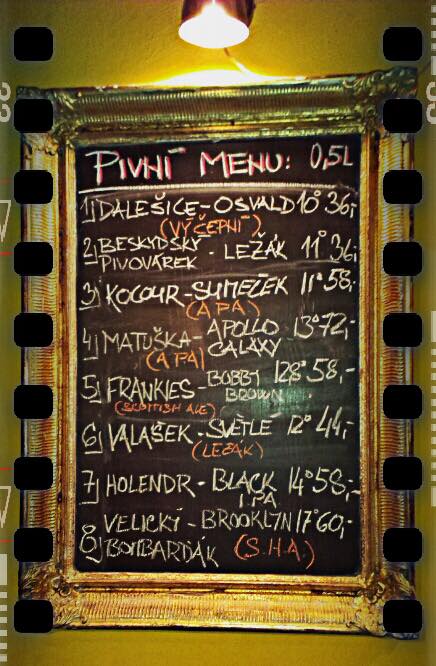 PIVNÍ MENU: 0,5L
1) DALEŠICE-OSVALD 10° 36,-
(VÝČEPNÍ)
2) BESKYDSKÝ PIVOVÁREK - LEŽÁK 11° 36,-
3) KOCOUR-SUMEČEK 11° 58,-
(APA)
4) MATUŠKA- APOLLO GALAXY 13° 72,-
(APA)
5) FRANKIES- BOBBY BROWN 58,-
(SCOTTISH ALE)
6) VALAŠEK - SVĚTLÉ 12° 44,-
(LEŽÁK)
7) HOLENDR - BLACK IPA 14° 58,-
8) VELICKÝ BOMBARĎÁK - BROOKLYN 17° 60,-
(S.H.A.)